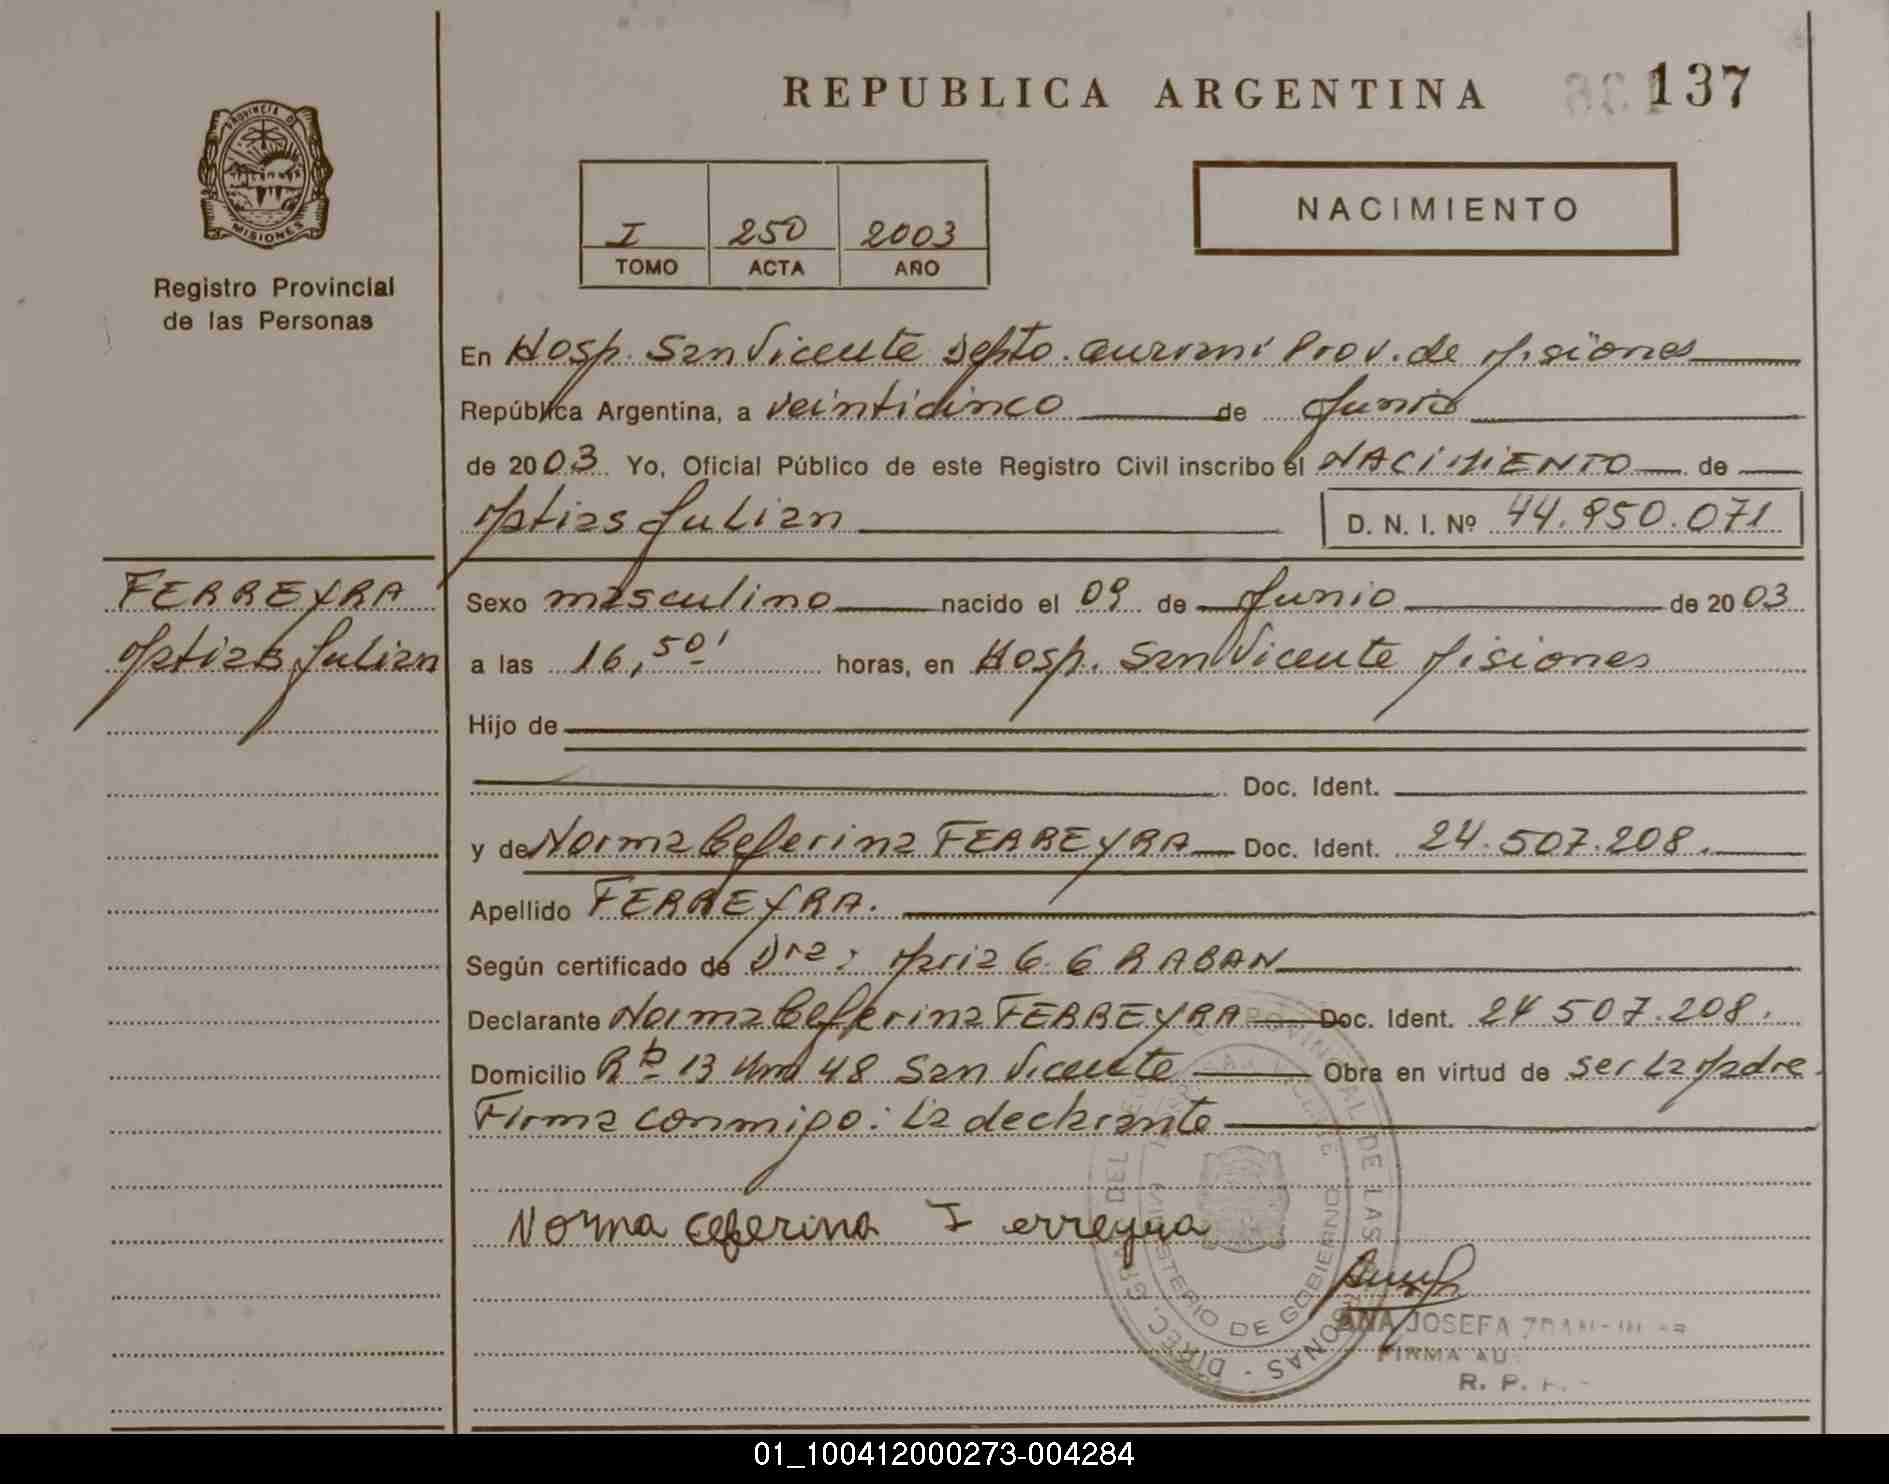 REPUBLICA ARGENTINA
137
PROVINCIA DE
MISIONES
Registro Provincial
de las Personas
I 250 2003
TOMO ACTA AÑO
NACIMIENTO
En Hosp. San Vicente Depto. Guaraní Prov. de Misiones
República Argentina, a veinticinco de Junio
de 2003 Yo, Oficial Público de este Registro Civil inscribo el NACIMIENTO de
Matias Julian D. N. I. Nº 44.950.071
FERREYRA
Matias Julian
Sexo masculino nacido el 09 de Junio de 2003
a las 16,50' horas, en Hosp. San Vicente Misiones
Hijo de
Doc. Ident.
y de Norma Ceferina FERREYRA Doc. Ident. 24.507.208.
Apellido FERREYRA.
Según certificado de Dra: Maria G. G RABAN
Declarante Norma Ceferina FERREYRA Doc. Ident. 24 507.208.
Domicilio 13 Km 48 San Vicente Obra en virtud de ser la Madre.
Firma conmigo: La declarante
Norma Ceferina Ferreyra
MINISTERIO DE GOBIERNO
ANA JOSEFA
FIRMA AU
R. P.
01_100412000273-004284